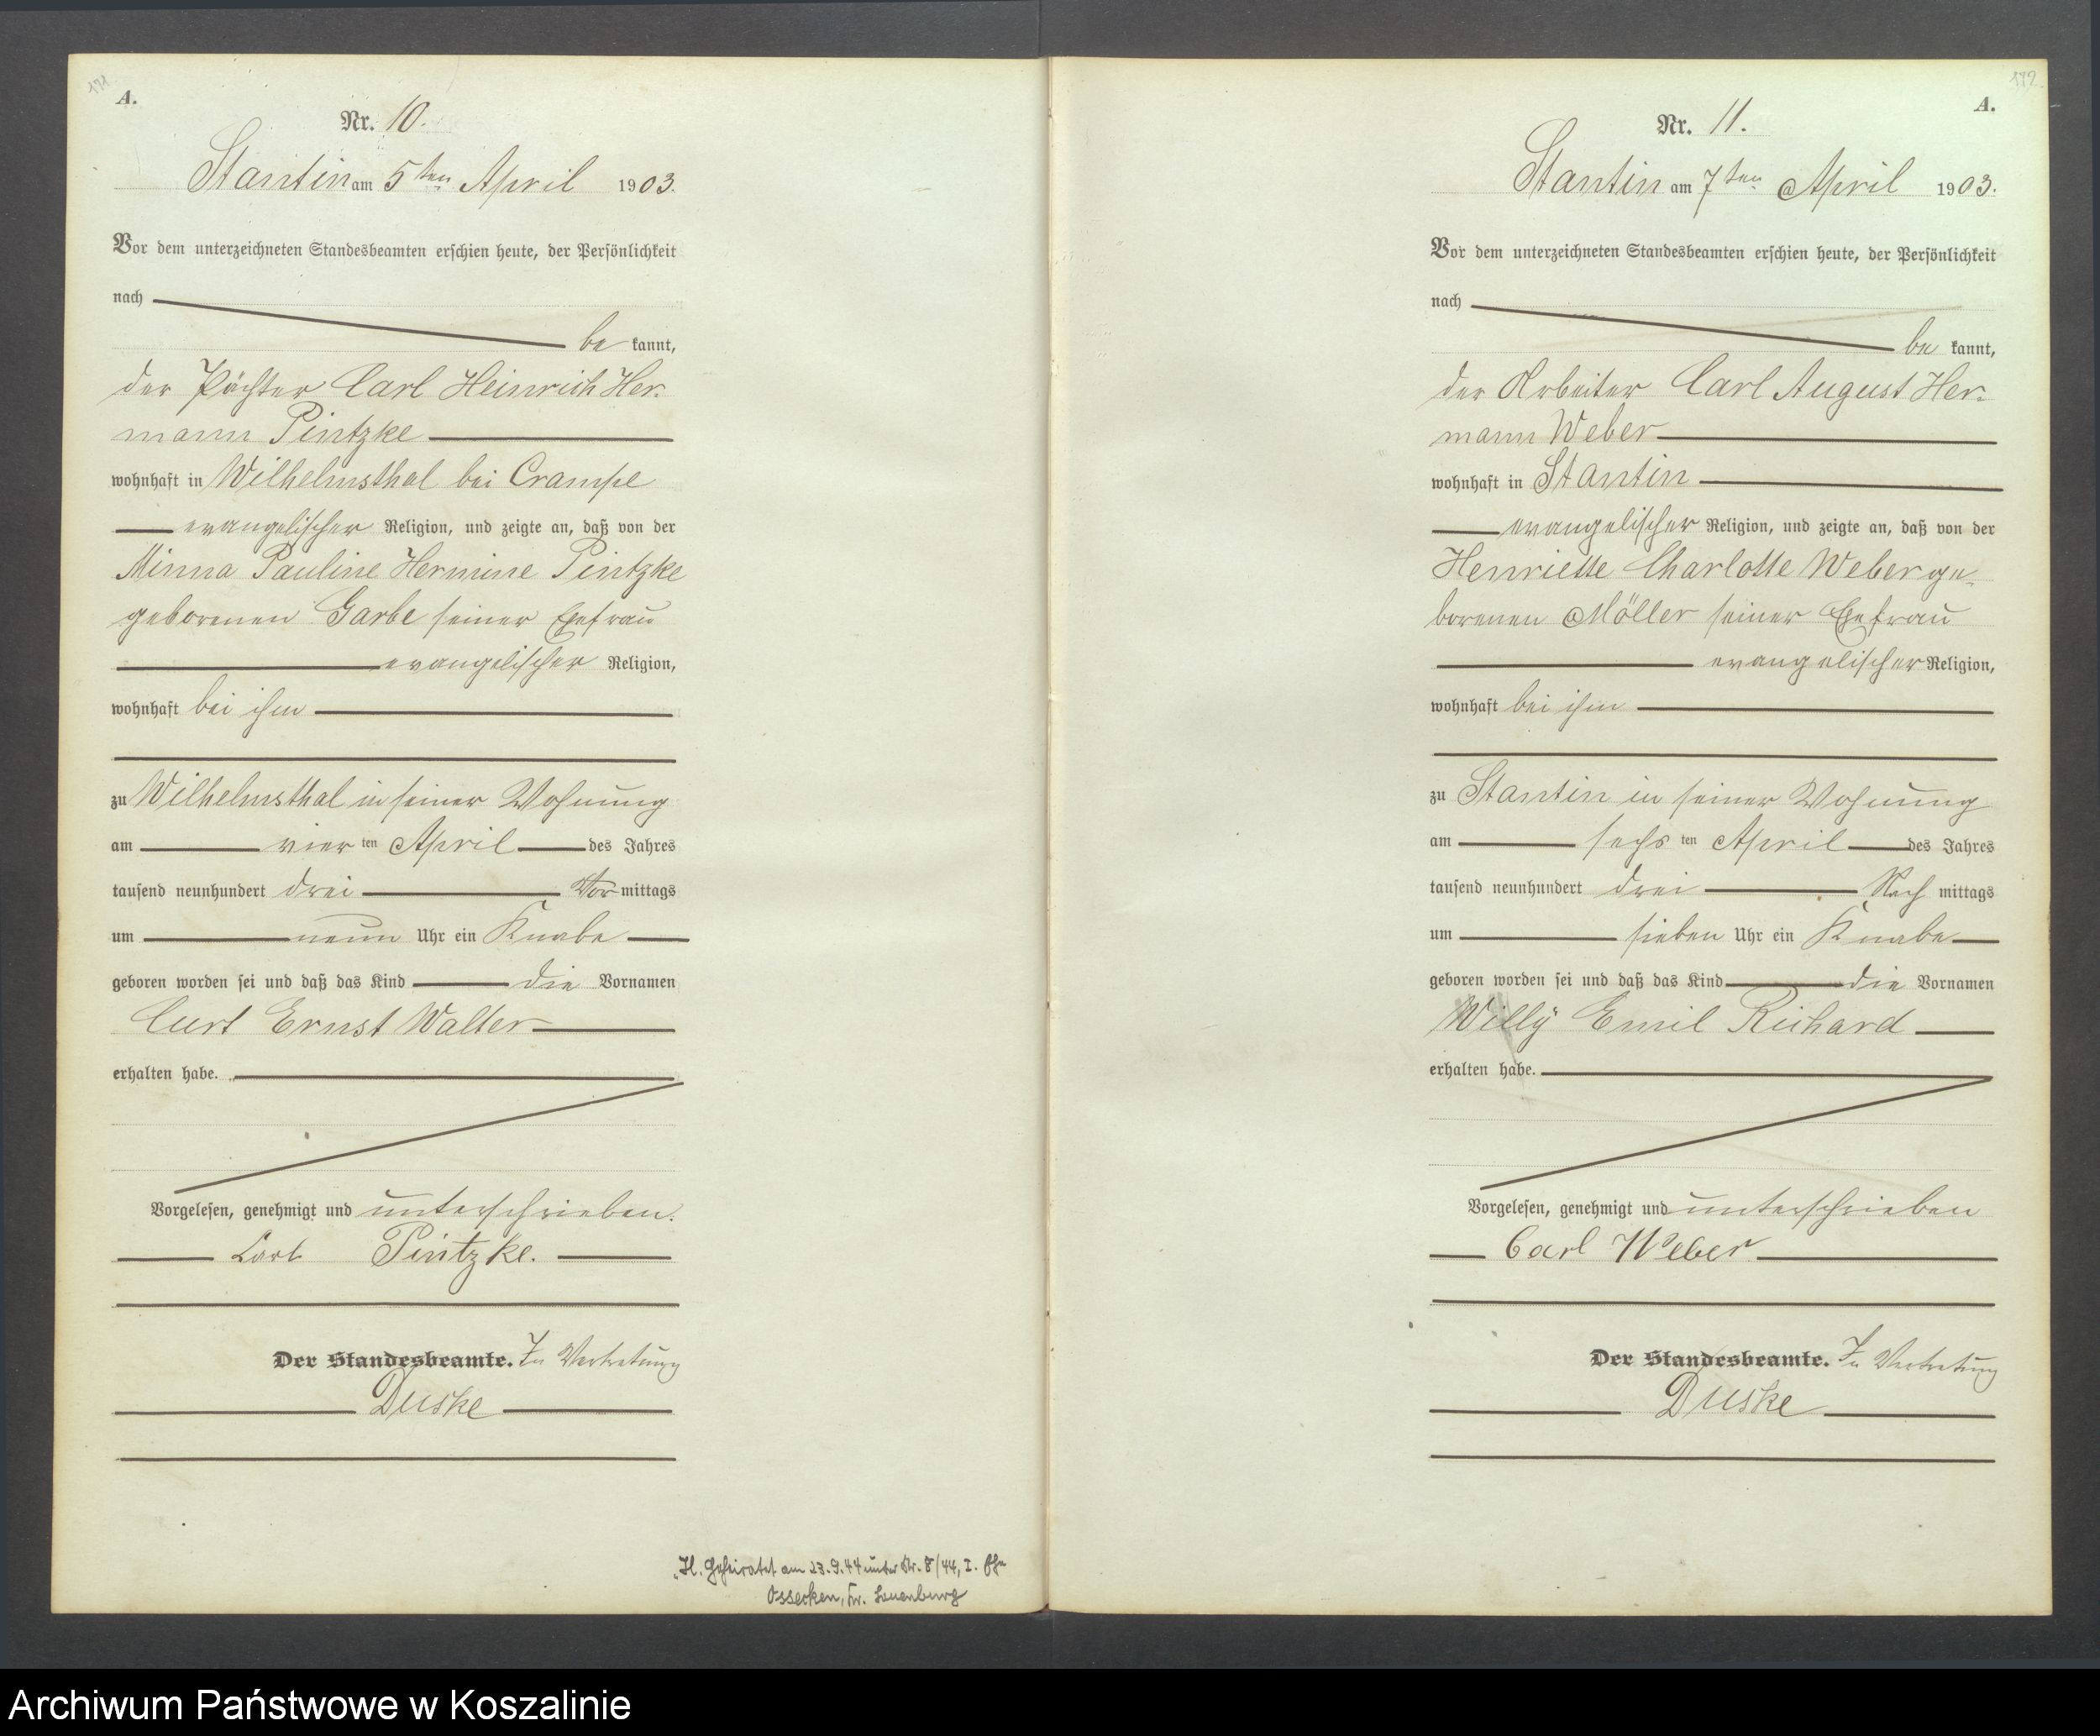 191
A.
Nr. 10.
Stantin am 5ten April 1903.
Vor dem unterzeichneten Standesbeamten erschien heute, der Persönlichkeit
nach
be kannt,
der Pächter Carl Heinrich Her-
mann Pintzke
wohnhaft in Wilhelmsthal bei Crampe
evangelischer Religion, und zeigte an, daß von der
Minna Pauline Hermine Pintzke
geborenen Garbe seiner Ehefrau
evangelischer Religion,
wohnhaft bei ihm
zu Wilhelmsthal in seiner Wohnung
am vier ten April des Jahres
tausend neunhundert drei Vor mittags
um neun Uhr ein Knabe
geboren worden sei und daß das Kind die Vornamen
Curt Ernst Walter
erhalten habe.
Vorgelesen, genehmigt und unterschrieben.
Carl Pintzke.
Der Standesbeamte. In Vertretung
Duske
Kl. Geheiratet am 23.9.44 unter Nr. 8/44, I. Ehe
Ossecken, Kr. Lauenburg
192
A.
Nr. 11.
Stantin am 7ten April 1903.
Vor dem unterzeichneten Standesbeamten erschien heute, der Persönlichkeit
nach
be kannt,
der Arbeiter Carl August Her-
mann Weber
wohnhaft in Stantin
evangelischer Religion, und zeigte an, daß von der
Henriette Charlotte Weber ge-
borenen Möller seiner Ehefrau
evangelischer Religion,
wohnhaft bei ihm
zu Stantin in seiner Wohnung
am sechs ten April des Jahres
tausend neunhundert drei Nach mittags
um sieben Uhr ein Knabe
geboren worden sei und daß das Kind die Vornamen
Willy Emil Richard
erhalten habe.
Vorgelesen, genehmigt und unterschrieben
Carl Weber
Der Standesbeamte. In Vertretung
Duske
Archiwum Państwowe w Koszalinie